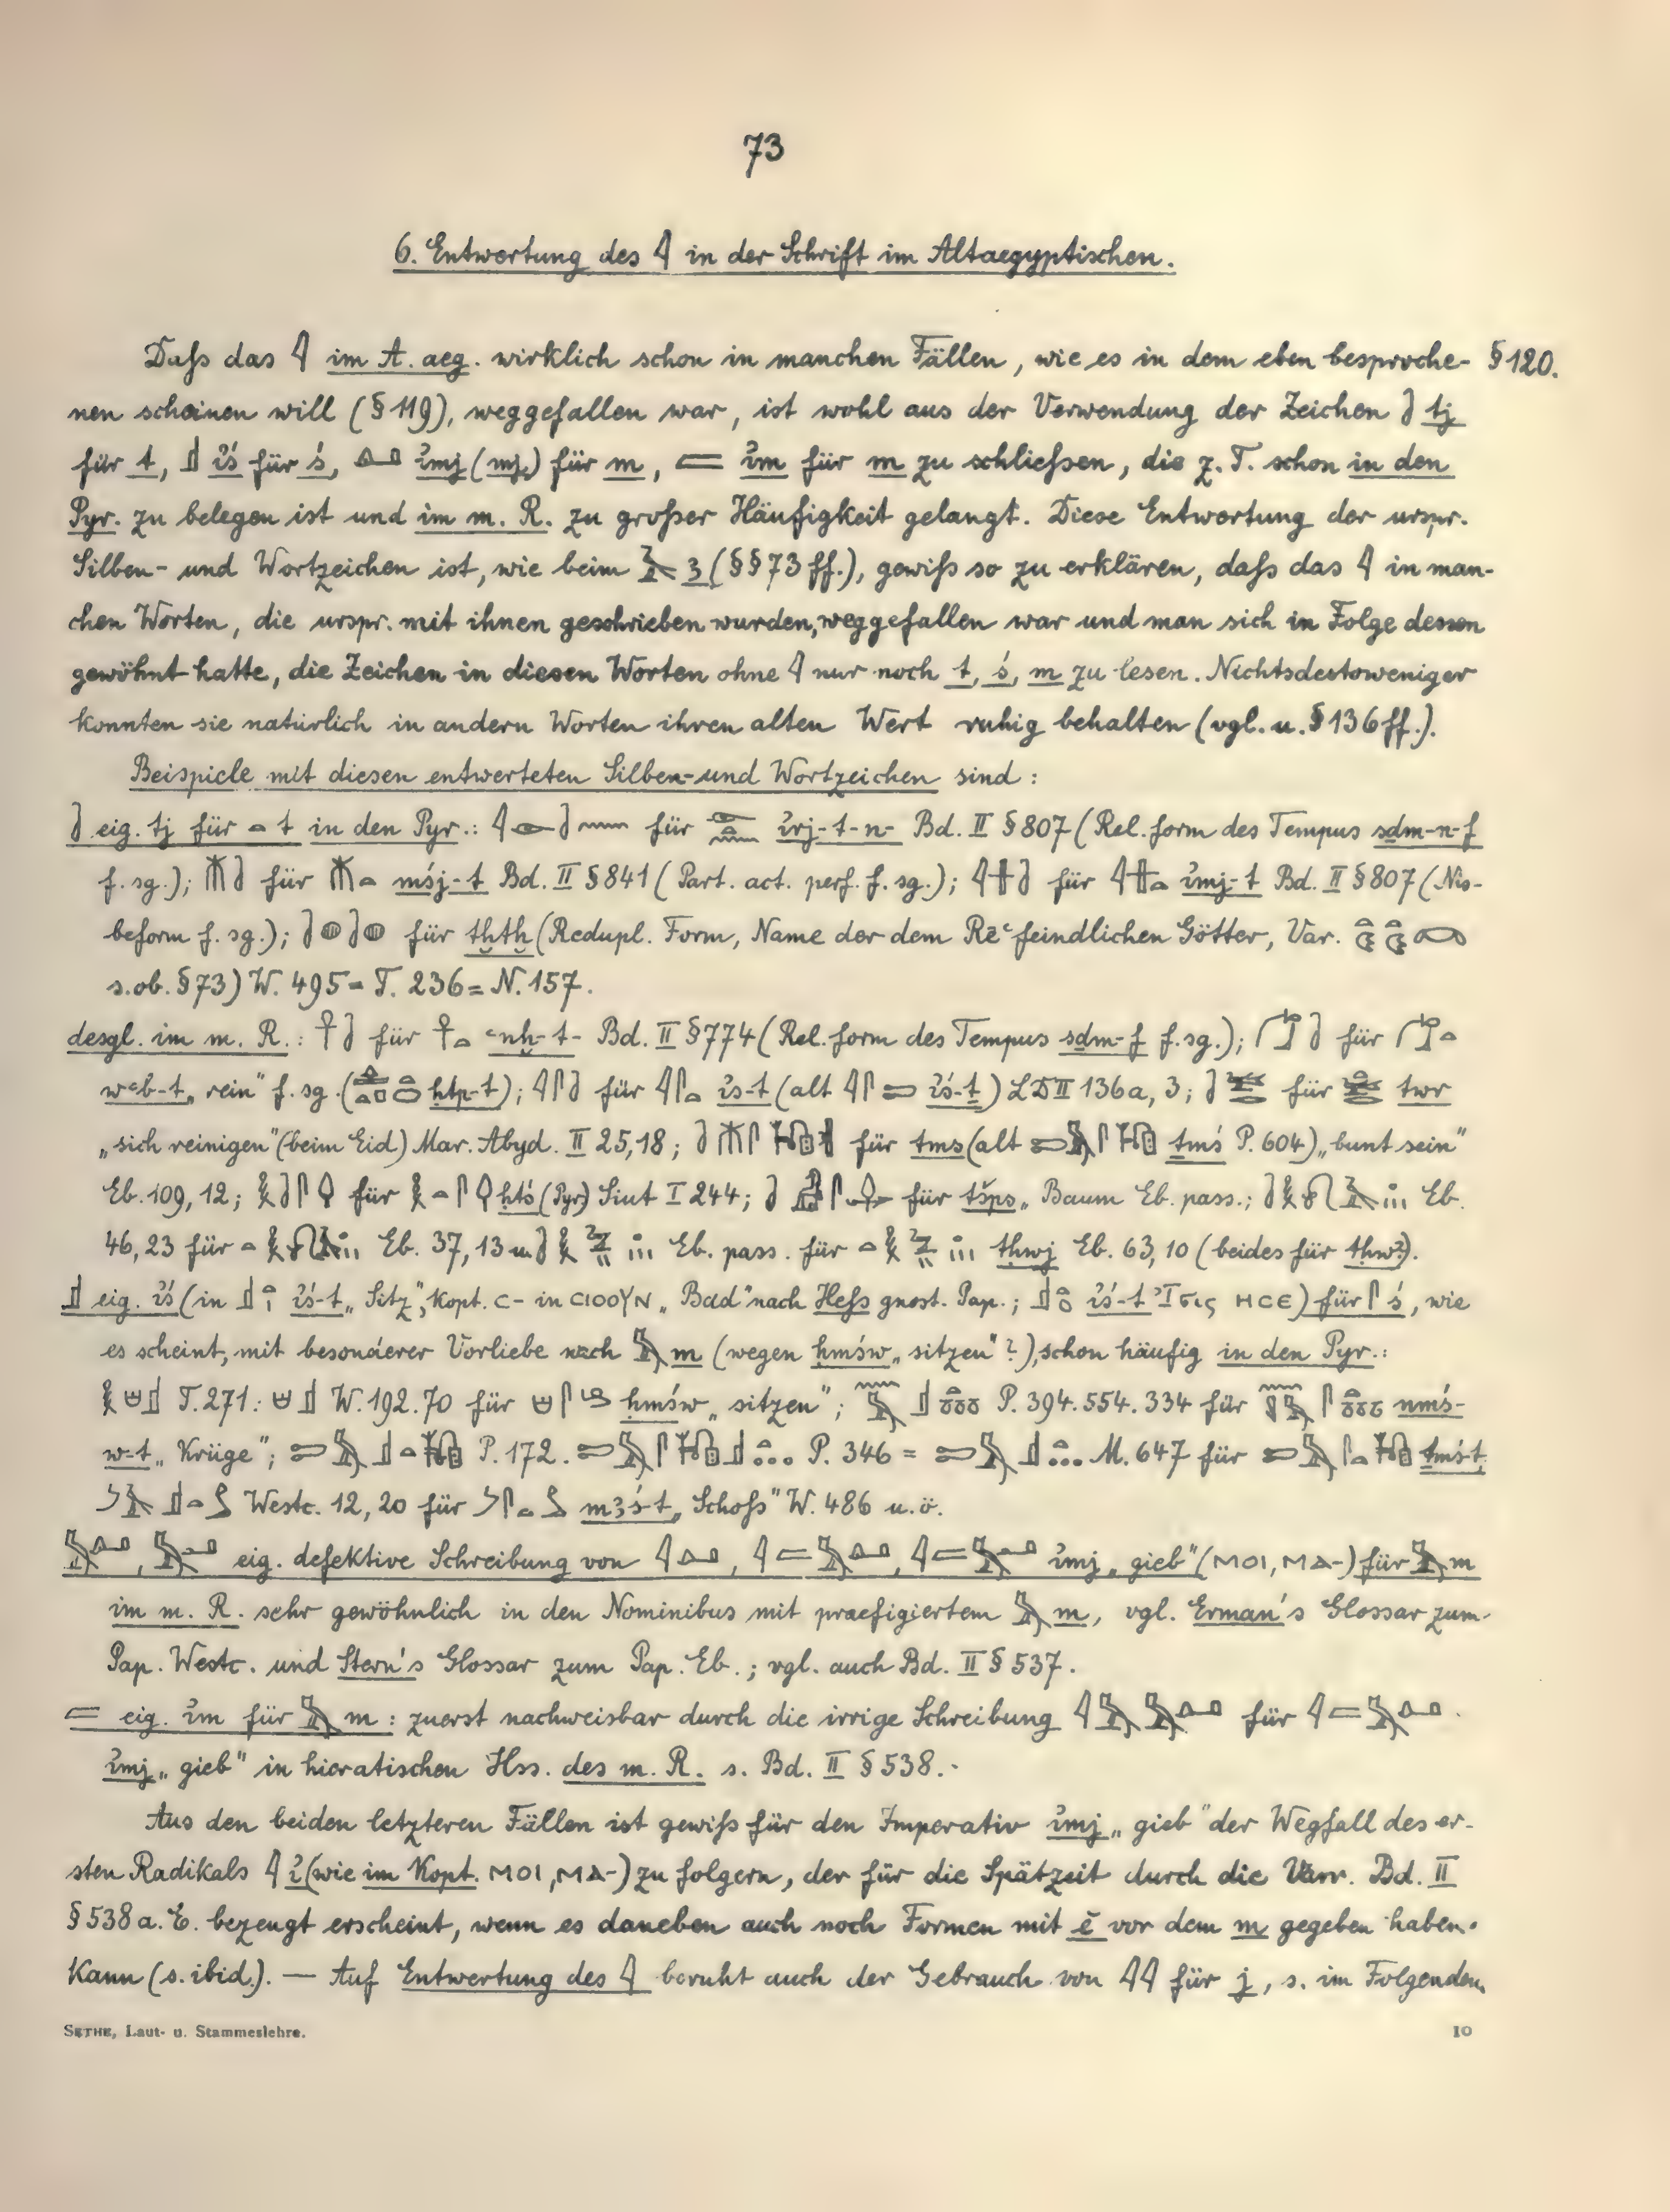 73
6. Entwertung des 𓇋 in der Schrift im Altaegyptischen.
Daſs das 𓇋 im A. aeg. wirklich schon in manchen Fällen, wie es in dem eben besproche- § 120.
nen scheinen will (§ 119), weggefallen war, ist wohl aus der Verwendung der Zeichen tj
für t, 𓊨 i͗ś für ś, 𓏙 i͗mj (mj) für m, 𓐛 i͗m für m zu schlieſsen, die z. T. schon in den
Pyr. zu belegen ist und im m. R. zu groſser Häufigkeit gelangt. Diese Entwertung der urspr.
Silben- und Wortzeichen ist, wie beim 𓄿 ꜣ (§§ 73 ff.), gewiſs so zu erklären, daſs das 𓇋 in man-
chen Worten, die urspr. mit ihnen geschrieben wurden, weggefallen war und man sich in Folge dessen
gewöhnt hatte, die Zeichen in diesen Worten ohne 𓇋 nur noch t, ś, m zu lesen. Nichtsdestoweniger
konnten sie natürlich in andern Worten ihren alten Wert ruhig behalten (vgl. u. § 136 ff.).
Beispiele mit diesen entwerteten Silben- und Wortzeichen sind:
eig. tj für 𓏏 t in den Pyr.: für i͗rj-t-n- Bd. II § 807 (Rel. form des Tempus sdm-n-f
f. sg.); für mśj-t Bd. II § 841 (Part. act. perf. f. sg.); für i͗mj-t Bd. II § 807 (Nis-
beform f. sg.); für tḫtḫ (Redupl. Form, Name der dem Rēꜥ feindlichen Götter, Var.
s. ob. § 73) W. 495 = T. 236 = N. 157.
desgl. im m. R.: für ꜥnḫ-t- Bd. II § 774 (Rel. form des Tempus sdm-f f. sg.); für
wꜥb-t „rein" f. sg. ( ḥtp-t); für i͗s-t (alt i͗ś-ṯ) LD II 136a, 3; für twr
„sich reinigen" (beim Eid) Mar. Abyd. II 25,18; für tms (alt ṯmś P. 604) „bunt sein"
Eb. 109, 12; für ḥtś (Pyr) Siut I 244; für tšps „Baum Eb. pass.; Eb.
46, 23 für Eb. 37, 13 u. Eb. pass. für tḥwj Eb. 63, 10 (beides für tḥwꜣ).
𓊨 eig. i͗ś (in i͗ś-t „Sitz", kopt. ⲥ- in ⲥⲓⲟⲟⲩⲛ „Bad" nach Heſs gnost. Pap.; i͗ś-t Ἶσις ⲏⲥⲉ) für 𓋴 ś, wie
es scheint, mit besonderer Vorliebe nach 𓅓 m (wegen ḥmśw „sitzen"?), schon häufig in den Pyr.:
T. 271. W. 192.70 für ḥmśw „sitzen"; P. 394.554.334 für nmś-
w-t „Krüge"; P. 172. P. 346 = M. 647 für ṯmś-t,
Westc. 12, 20 für mꜣś-t „Schoſs" W. 486 u. ö.
eig. defektive Schreibung von i͗mj „gieb" (ⲙⲟⲓ, ⲙⲁ-) für 𓅓 m
im m. R. sehr gewöhnlich in den Nominibus mit praefigiertem 𓅓 m, vgl. Erman's Glossar zum
Pap. Westc. und Stern's Glossar zum Pap. Eb.; vgl. auch Bd. II § 537.
𓐛 eig. i͗m für 𓅓 m: zuerst nachweisbar durch die irrige Schreibung für
i͗mj „gieb" in hieratischen Hss. des m. R. s. Bd. II § 538.-
Aus den beiden letzteren Fällen ist gewiſs für den Imperativ i͗mj „gieb" der Wegfall des er-
sten Radikals 𓇋 i͗ (wie im Kopt. ⲙⲟⲓ, ⲙⲁ-) zu folgern, der für die Spätzeit durch die Varr. Bd. II
§ 538 a. E. bezeugt erscheint, wenn es daneben auch noch Formen mit ĕ vor dem m gegeben haben
kann (s. ibid.). — Auf Entwertung des 𓇋 beruht auch der Gebrauch von 𓇋𓇋 für j, s. im Folgenden.
SETHE, Laut- u. Stammeslehre. 10